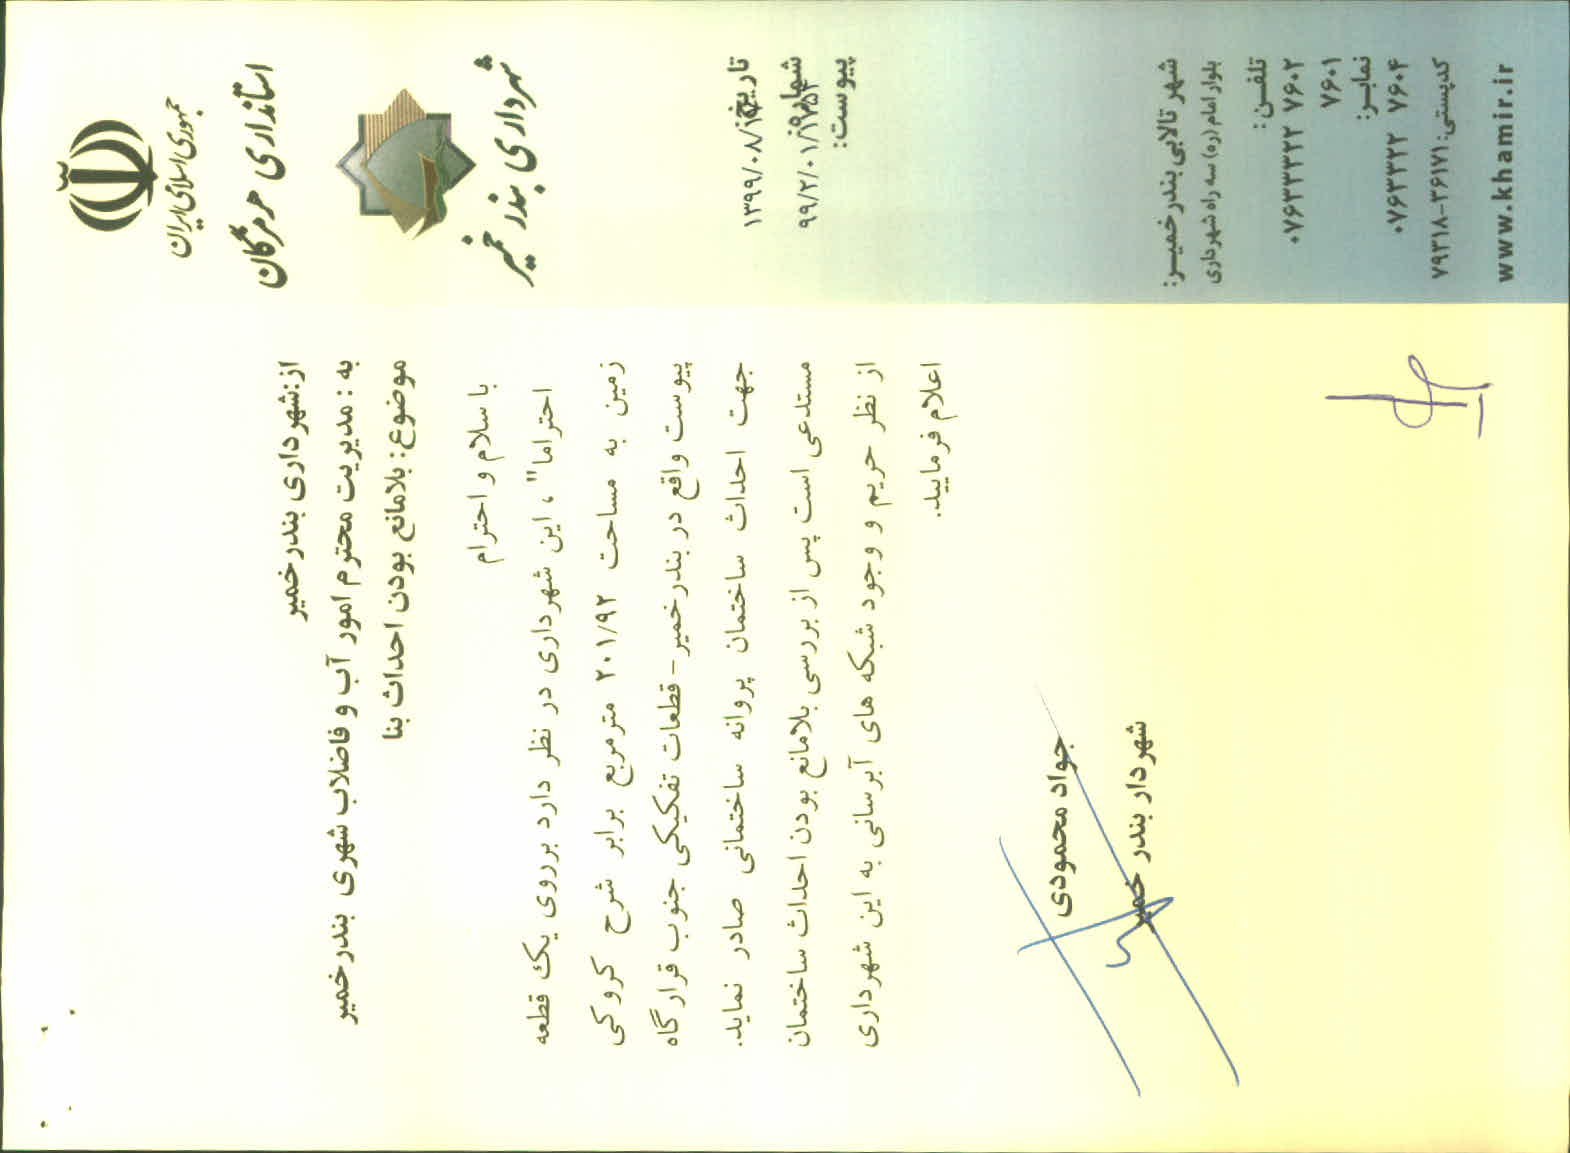 جمهوری اسلامی ایران
استانداری هرمزگان
شهرداری بندر خمیر
تاریخ:
۱۳۹۹/۰۸/
شماره:
۹۹/۲/۰۱/
پیوست:
شهر تالابی بندر خمیـر:
بلوار امام (ره) سه راه شهرداری
تلفـن:
۰۷۶۳۳۳۲۲ ۷۶۰۲
۷۶۰۱
نمابـر:
۰۷۶۳۳۲۲ ۷۶۰۴
کدپستی: ۷۹۳۱۸-۳۶۱۷۱
www.khamir.ir
از:شهرداری بندر خمیر
به : مدیریت محترم امور آب و فاضلاب شهری بندر خمیر
موضوع: بلامانع بودن احداث بنا
با سلام و احترام
احتراما" ، این شهرداری در نظر دارد برروی یک قطعه
زمین به مساحت ۲۰۱/۹۲ مترمربع برابر شرح کروکی
پیوست واقع در بندر خمیر - قطعات تفکیکی جنوب قرارگاه
جهت احداث ساختمان پروانه ساختمانی صادر نماید.
مستدعی است پس از بررسی بلامانع بودن احداث ساختمان
از نظر حریم و وجود شبکه های آبرسانی به این شهرداری
اعلام فرمایید.
جواد محمودی
شهردار بندر خمیر